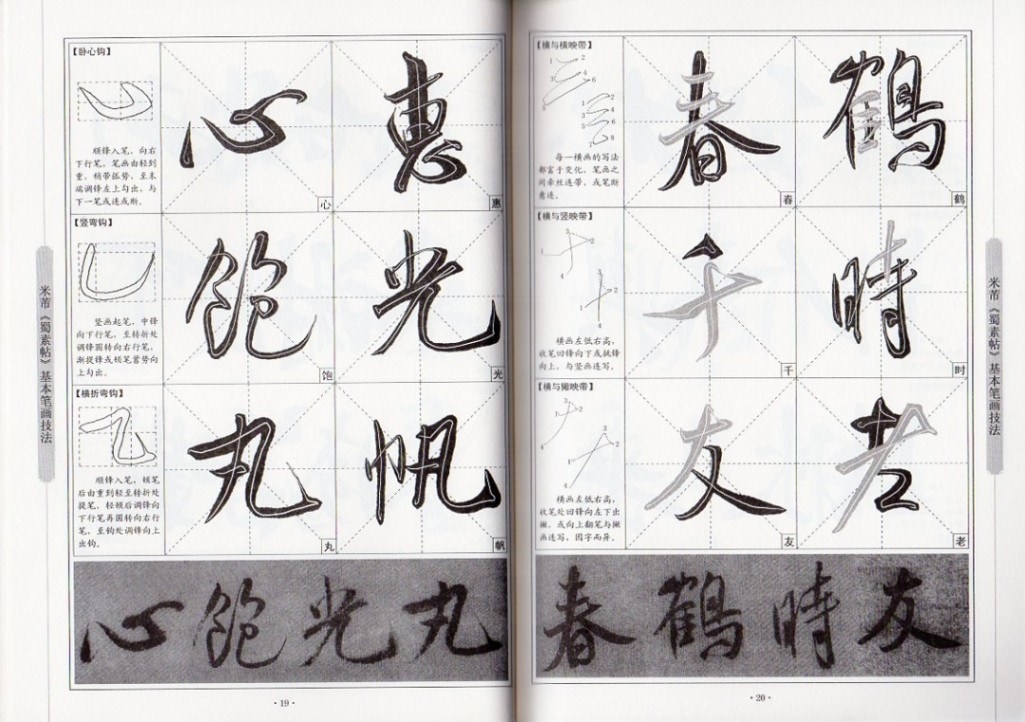 【卧心钩】
顺锋入笔，向右
下行笔，笔画由轻到
重，稍带弧势，至末
端调锋左上勾出，与
下一笔或连或断。
心
惠
心
惠
【竖弯钩】
竖画起笔，中锋
向下行笔，至转折处
调锋圆转向右行笔，
渐提锋或顿笔蓄势向
上勾出。
饱
光
饱
光
【横折弯钩】
顺锋入笔，顿笔
后由重到轻至转折处
提笔，轻顿后调锋向
下行笔再圆转向右行
笔，至钩处调锋向上
出钩。
丸
帆
丸
帆
心飽光丸
米芾《蜀素帖》基本笔画技法
·19·
【横与横映带】
1
2
3
4
5
6
1
2
3
4
5
6
8
每一横画的写法
都富于变化，笔画之
间牵丝连带，或笔断
意连。
春
鶴
春
鹤
【横与竖映带】
1
2
3
1
2
3
4
横画左低右高，
收笔回锋向下或挑锋
向上，与竖画连写。
千
時
千
时
【横与撇映带】
1
2
3
4
1
2
3
4
横画左低右高，
收笔处回锋向左下出
撇，或向上翻笔与撇
画连写，因字而异。
友
老
友
老
春鶴時友
米芾《蜀素帖》基本笔画技法
·20·